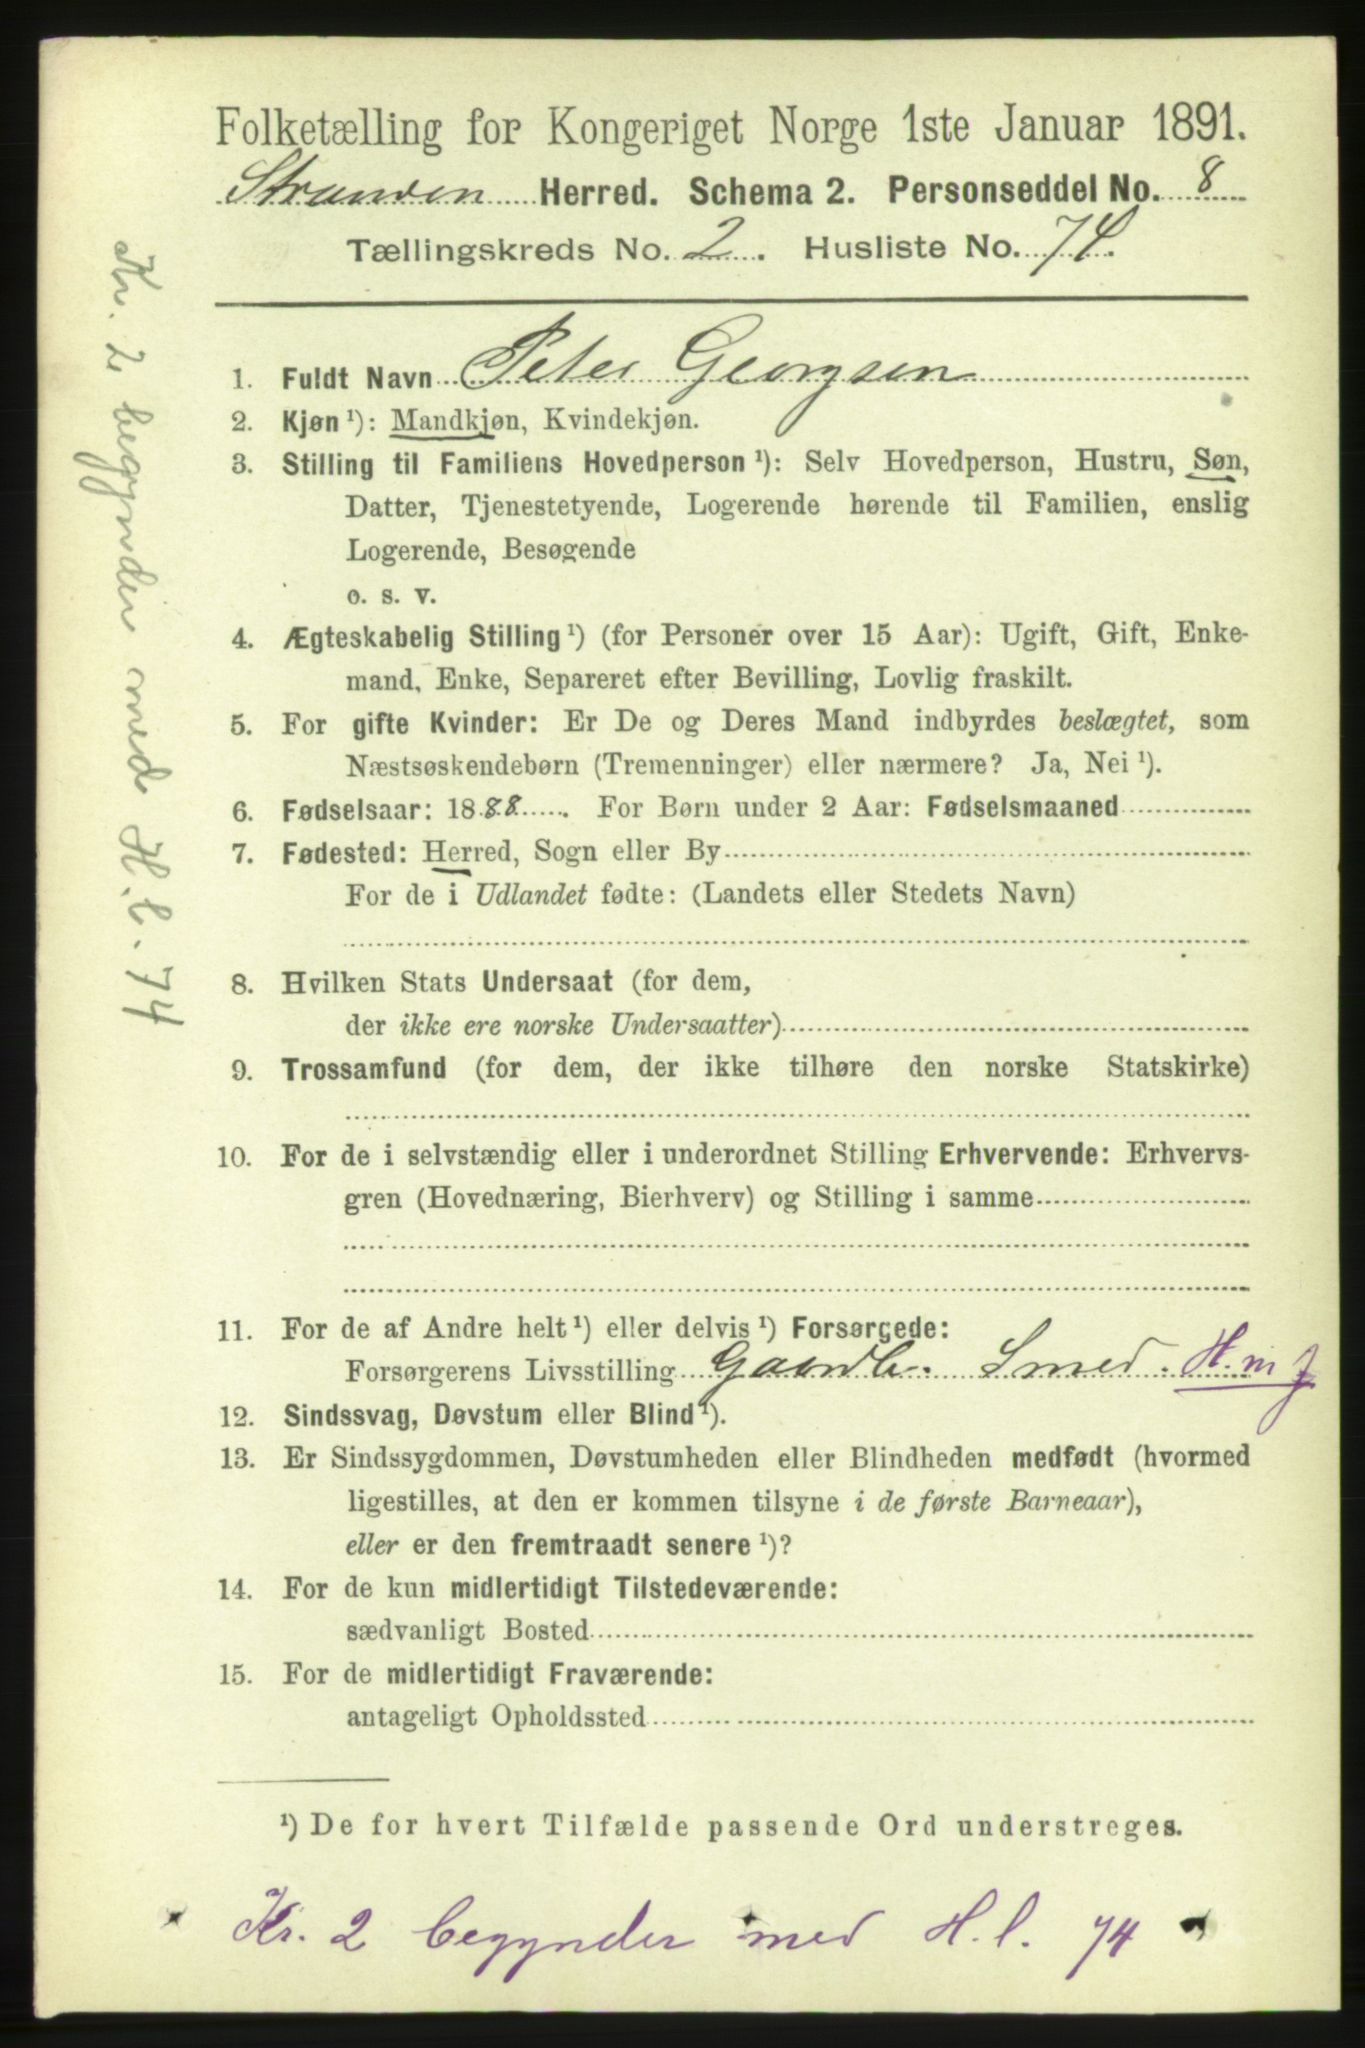 Folketælling for Kongeriget Norge 1ste Januar 1891.
Stranden Herred. Schema 2. Personseddel No. 8
Tællingskreds No. 2. Husliste No. 74.
1. Fuldt Navn Peter Georgsen
2. Kjøn ¹): Mandkjøn, Kvindekjøn.
3. Stilling til Familiens Hovedperson ¹): Selv Hovedperson, Hustru, Søn,
Datter, Tjenestetyende, Logerende hørende til Familien, enslig
Logerende, Besøgende
o. s. v.
4. Ægteskabelig Stilling ¹) (for Personer over 15 Aar): Ugift, Gift, Enke-
mand, Enke, Separeret efter Bevilling, Lovlig fraskilt.
5. For gifte Kvinder: Er De og Deres Mand indbyrdes beslægtet, som
Næstsøskendebørn (Tremenninger) eller nærmere? Ja, Nei ¹).
6. Fødselsaar: 1888. For Børn under 2 Aar: Fødselsmaaned
7. Fødested: Herred, Sogn eller By
For de i Udlandet fødte: (Landets eller Stedets Navn)
8. Hvilken Stats Undersaat (for dem,
der ikke ere norske Undersaatter)
9. Trossamfund (for dem, der ikke tilhøre den norske Statskirke)
10. For de i selvstændig eller i underordnet Stilling Erhvervende: Erhvervs-
gren (Hovednæring, Bierhverv) og Stilling i samme
11. For de af Andre helt ¹) eller delvis ¹) Forsørgede:
Forsørgerens Livsstilling Gaardb. Smed. H. m f
12. Sindssvag, Døvstum eller Blind ¹).
13. Er Sindssygdommen, Døvstumheden eller Blindheden medfødt (hvormed
ligestilles, at den er kommen tilsyne i de første Barneaar),
eller er den fremtraadt senere ¹)?
14. For de kun midlertidigt Tilstedeværende:
sædvanligt Bosted
15. For de midlertidigt Fraværende:
antageligt Opholdssted
¹) De for hvert Tilfælde passende Ord understreges.
Kr. 2 begynder med H. l. 74
Kr. 2 begynder med H. l. 74